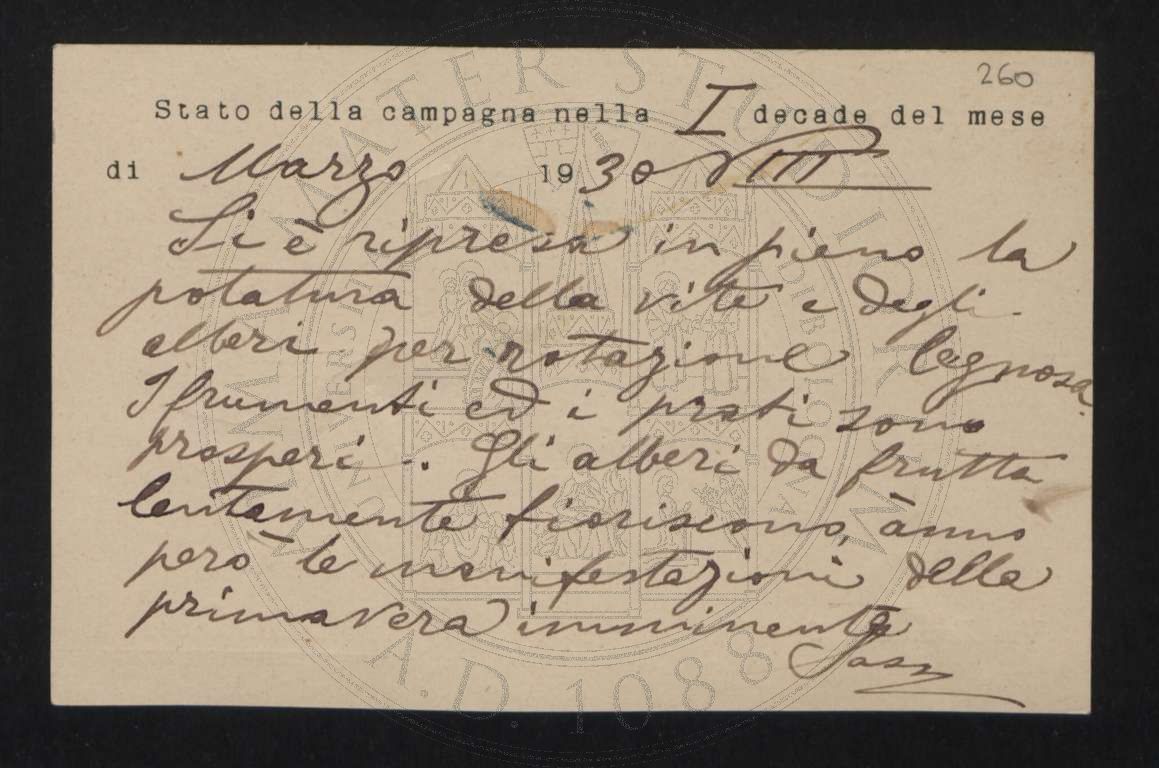 260
Stato della campagna nella I decade del mese
di Marzo 1930 VIII
Si è ripresa in pieno la
potatura della vite e degli
alberi per rotazione legnosa.
I frumenti ed i prati sono
prosperi. Gli alberi da frutta
lentamente fioriscono, ànno
però le manifestazioni della
primavera imminente
ALMA MATER STUDIORUM
A.D. 1088